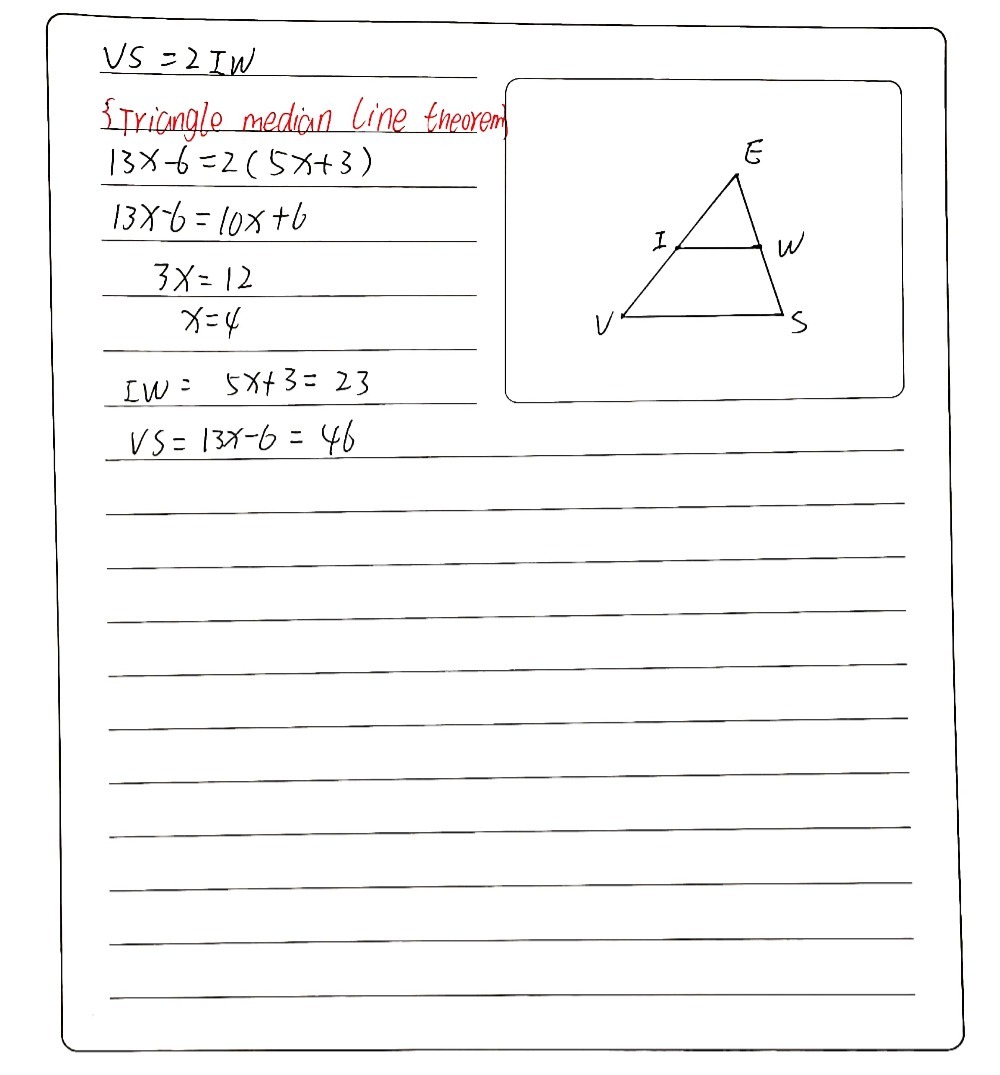 VS = 2 IW
{Triangle median line theorem}
13x-6=2(5x+3)
13x-6=10x+6
3x=12
x=4
IW = 5x+3= 23
VS= 13x-6 = 46
E
I
W
V
S